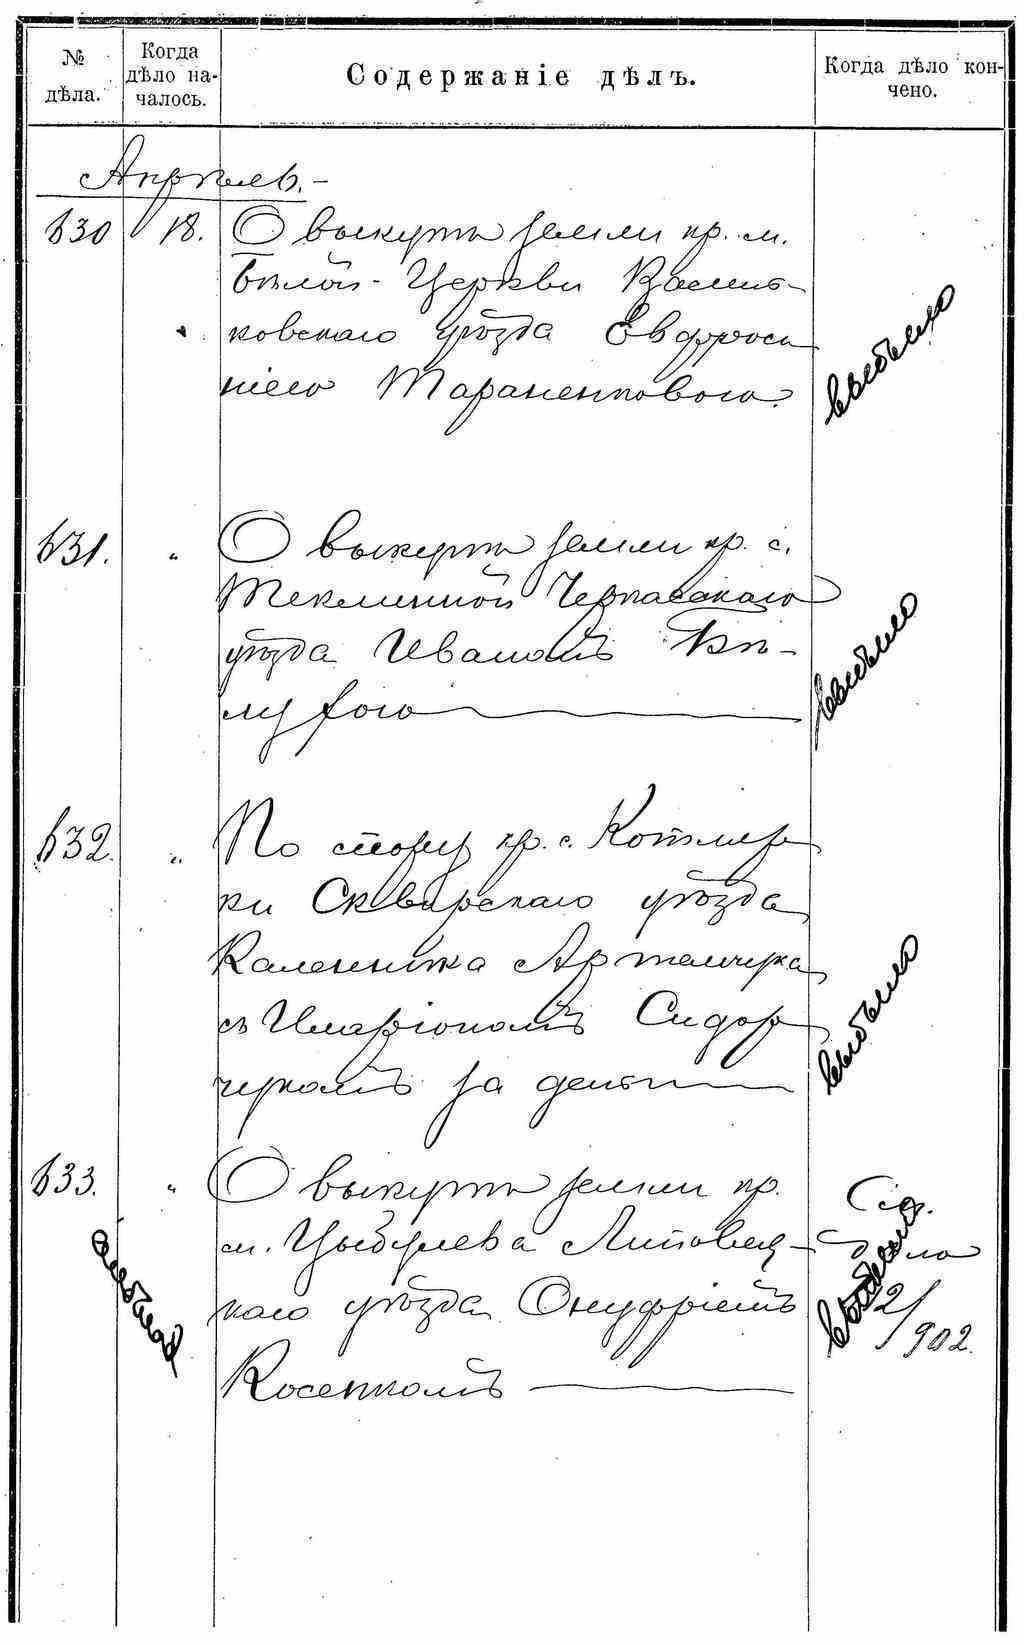 № дѣла.
Когда дѣло на-
чалось.
Содержаніе дѣлъ.
Когда дѣло кон-
чено.
Апрѣль.-
630 18. О выкупѣ земли кр. м.
Бѣлой-Церкви Василь-
ковскаго уѣзда Евфроси
ніею Тараненковою.
выбыло
631. " О выкупѣ земли кр. с.
Теклиной Черкасскаго
уѣзда Иваномъ Бѣ-
лу
выбыло
632. " По спору кр. с. Котляр
ки Сквирскаго уѣзда
Каленника Артемчука
съ Иларіономъ Сидор
чукомъ за деньги
выбыло
633. " О выкупѣ земли кр.
м. Цыбулева Липовец-
каго уѣзда Онуфріемъ
Косенкомъ
См.
дѣло
2/902.
выбыло